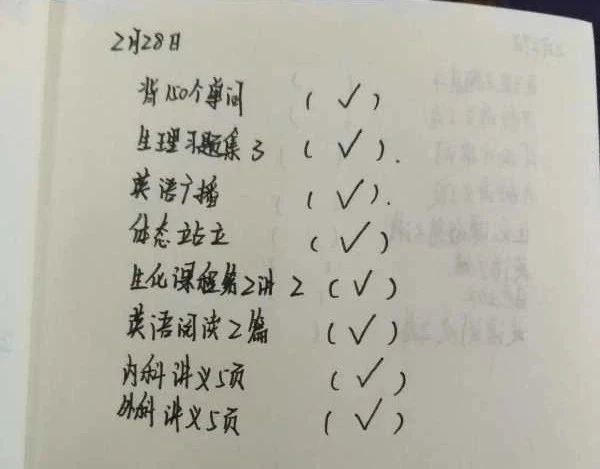 2月28日
背150个单词 (✓)
生理习题集3 (✓).
英语广播 (✓).
体态站立 (✓)
生化课程第2讲2 (✓)
英语阅读2篇 (✓)
内科讲义5页 (✓)
外科讲义5页 (✓)